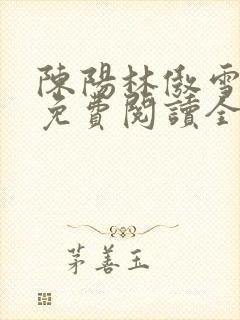 陳陽林傲雪
免費閱讀全
茅善玉